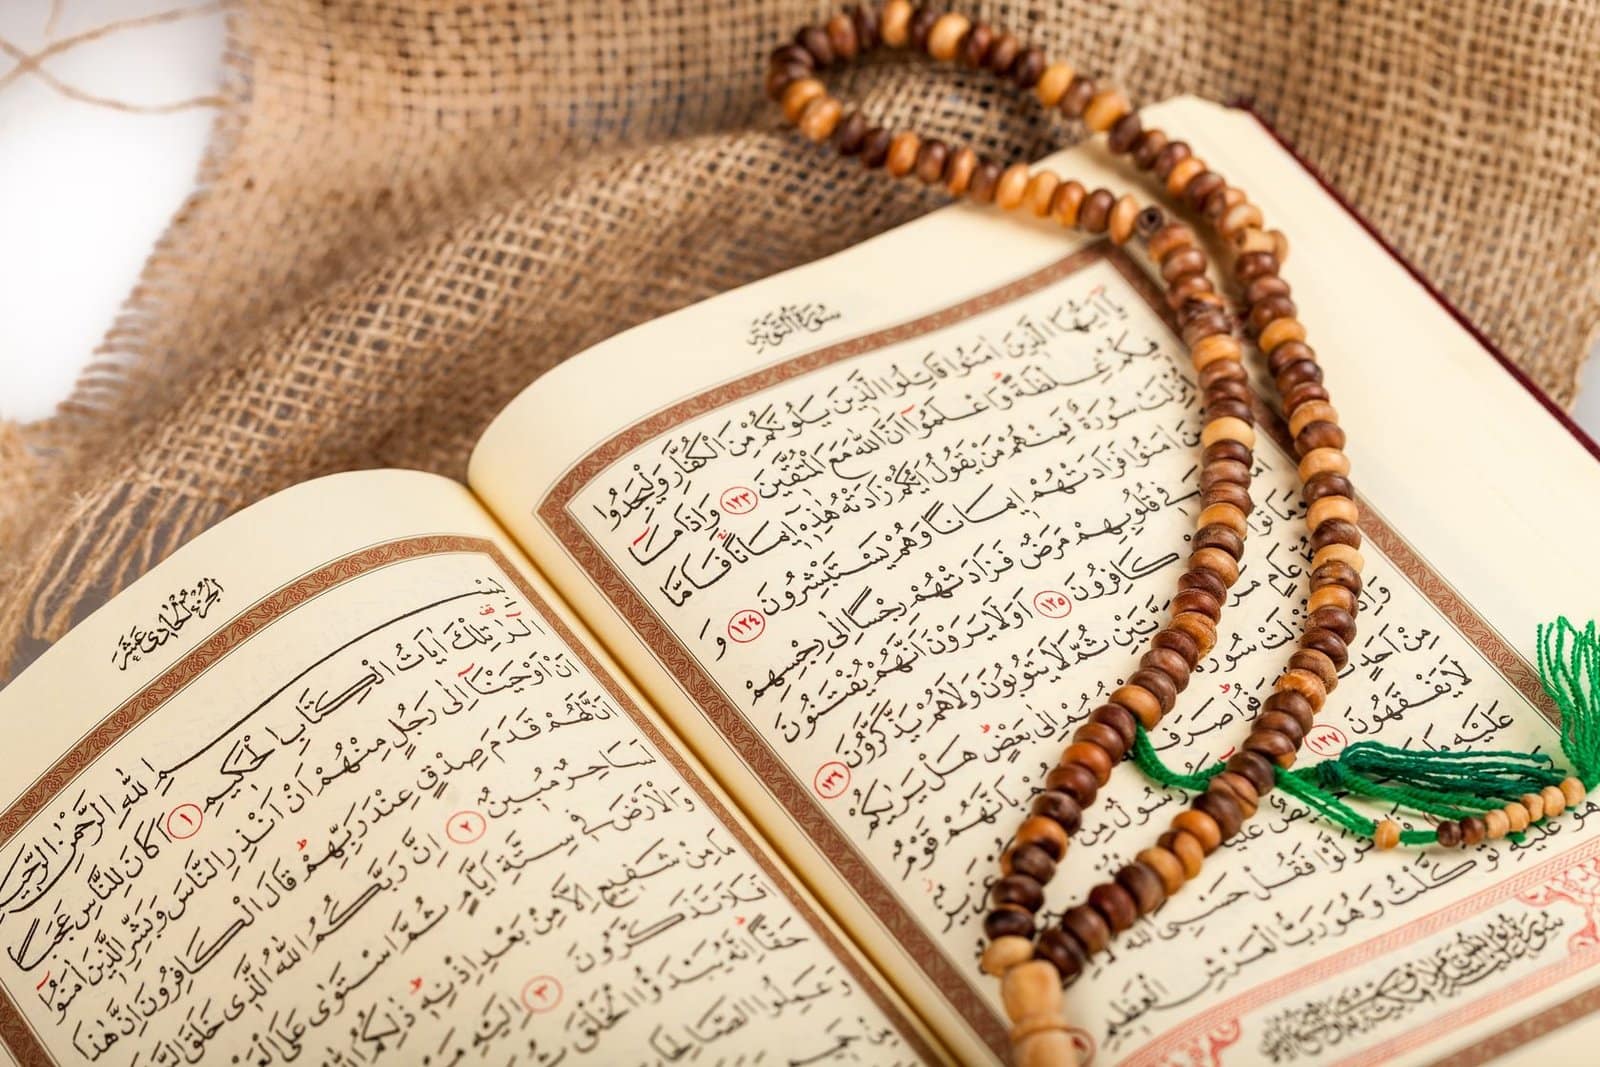 سُورَةُ التَّوْبَةِ
يَٓا اَيُّهَا الَّذٖينَ اٰمَنُوا قَاتِلُوا الَّذٖينَ يَلُونَكُمْ مِنَ الْكُفَّارِ وَلْيَجِدُوا
فٖيكُمْ غِلْظَةًؕ وَاعْلَمُٓوا اَنَّ اللّٰهَ مَعَ الْمُتَّقٖينَ ١٢٣ وَاِذَا مَٓا
اُنْزِلَتْ سُورَةٌ فَمِنْهُمْ مَنْ يَقُولُ اَيُّكُمْ زَادَتْهُ هٰذِهٖٓ اٖيمَانًاۚ فَاَمَّا
اٰمَنُوا فَزَادَتْهُمْ اٖيمَانًا وَهُمْ يَسْتَبْشِرُونَ ١٢٤ وَ
فٖي قُلُوبِهِمْ مَرَضٌ فَزَادَتْهُمْ رِجْسًا اِلٰى رِجْسِهِمْ
وَمَاتُوا كَافِرُونَ ١٢٥ اَوَلَا يَرَوْنَ اَنَّهُمْ يُفْتَنُونَ
عَامٍ ثُمَّ لَا يَتُوبُونَ وَلَا هُمْ يَذَّكَّرُونَ ١٢٦
سُورَةٌ اِلٰى بَعْضٍؕ هَلْ يَرٰيكُمْ
مِنْ اَحَدٍ صَرَفَ بِاَنَّهُمْ قَوْمٌ
لَا يَفْقَهُونَ ١٢٧ رَسُولٌ مِنْ عَزٖيزٌ
عَلَيْهِ مَا
فَقُلْ حَسْبِيَ اللّٰهُ
هُوَ عَلَيْهِ تَوَكَّلْتُ وَهُوَ رَبُّ الْعَرْشِ الْعَظٖيمِ
اَلْجُزْءُ الْحَادٖى عَشَرَ
بِسْمِ اللّٰهِ الرَّحْمٰنِ الرَّحٖيمِ
الٓرٰ تِلْكَ اٰيَاتُ الْكِتَابِ الْحَكٖيمِ ١ اَكَانَ لِلنَّاسِ عَجَبًا
اَنْ اَوْحَيْنَٓا اِلٰى رَجُلٍ مِنْهُمْ اَنْ اَنْذِرِ النَّاسَ وَبَشِّرِ الَّذٖينَ اٰمَنُٓوا
اَنَّ لَهُمْ قَدَمَ صِدْقٍ عِنْدَ رَبِّهِمْؕ قَالَ الْكَافِرُونَ اِنَّ هٰذَا
لَسَاحِرٌ مُبٖينٌ ٢ اِنَّ رَبَّكُمُ اللّٰهُ الَّذٖى خَلَقَ
وَالْاَرْضَ فٖي سِتَّةِ اَيَّامٍ ثُمَّ اسْتَوٰى عَلَى
مَا مِنْ شَفٖيعٍ اِلَّا مِنْ بَعْدِ اِذْنِهٖؕ ذٰلِكُمُ اللّٰهُ
اَفَلَا تَذَكَّرُونَ ٣ اِلَيْهِ
حَقًّاؕ اِنَّهُ يَبْدَؤُا الْخَلْقَ
وَعَمِلُوا الصَّالِحَاتِ
مِنْ حَمٖيمٍ